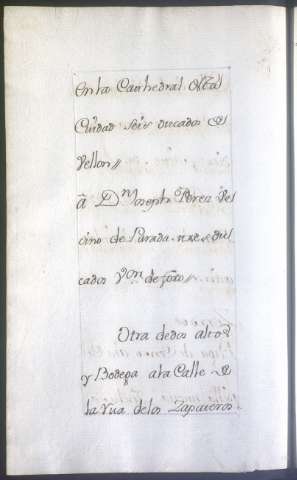 en la Cathedral desta
Ciudad seis ducados de
Vellon //
â Dn. Joseph Perez Ve
cino de Parada nueve du
cados Von. de foro //
Otra de dos altos
y Bodega a la Calle de
la rua de los Zapateros